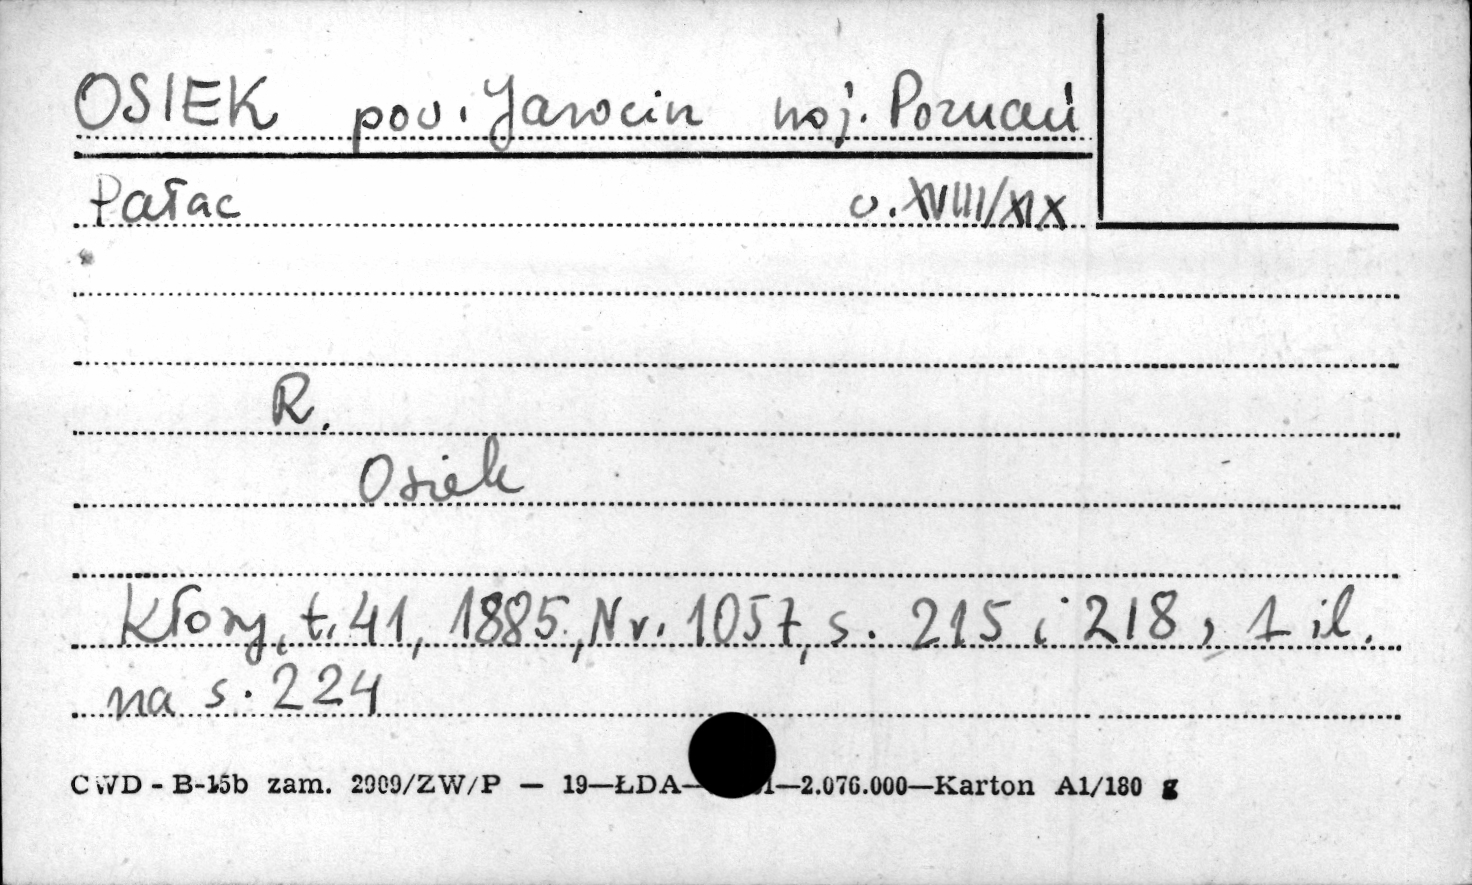 OSIEK pow. Jarocin woj. Poznań
Pałac w. XVIII/XIX
R.
Osiek
Kłosy, t. 41, 1885, Nr. 1057, s. 215 i 218, 1 il.
na s. 224
CWD - B-15b zam. 2909/ZW/P — 19—ŁDA— —2.076.000—Karton A1/180 g